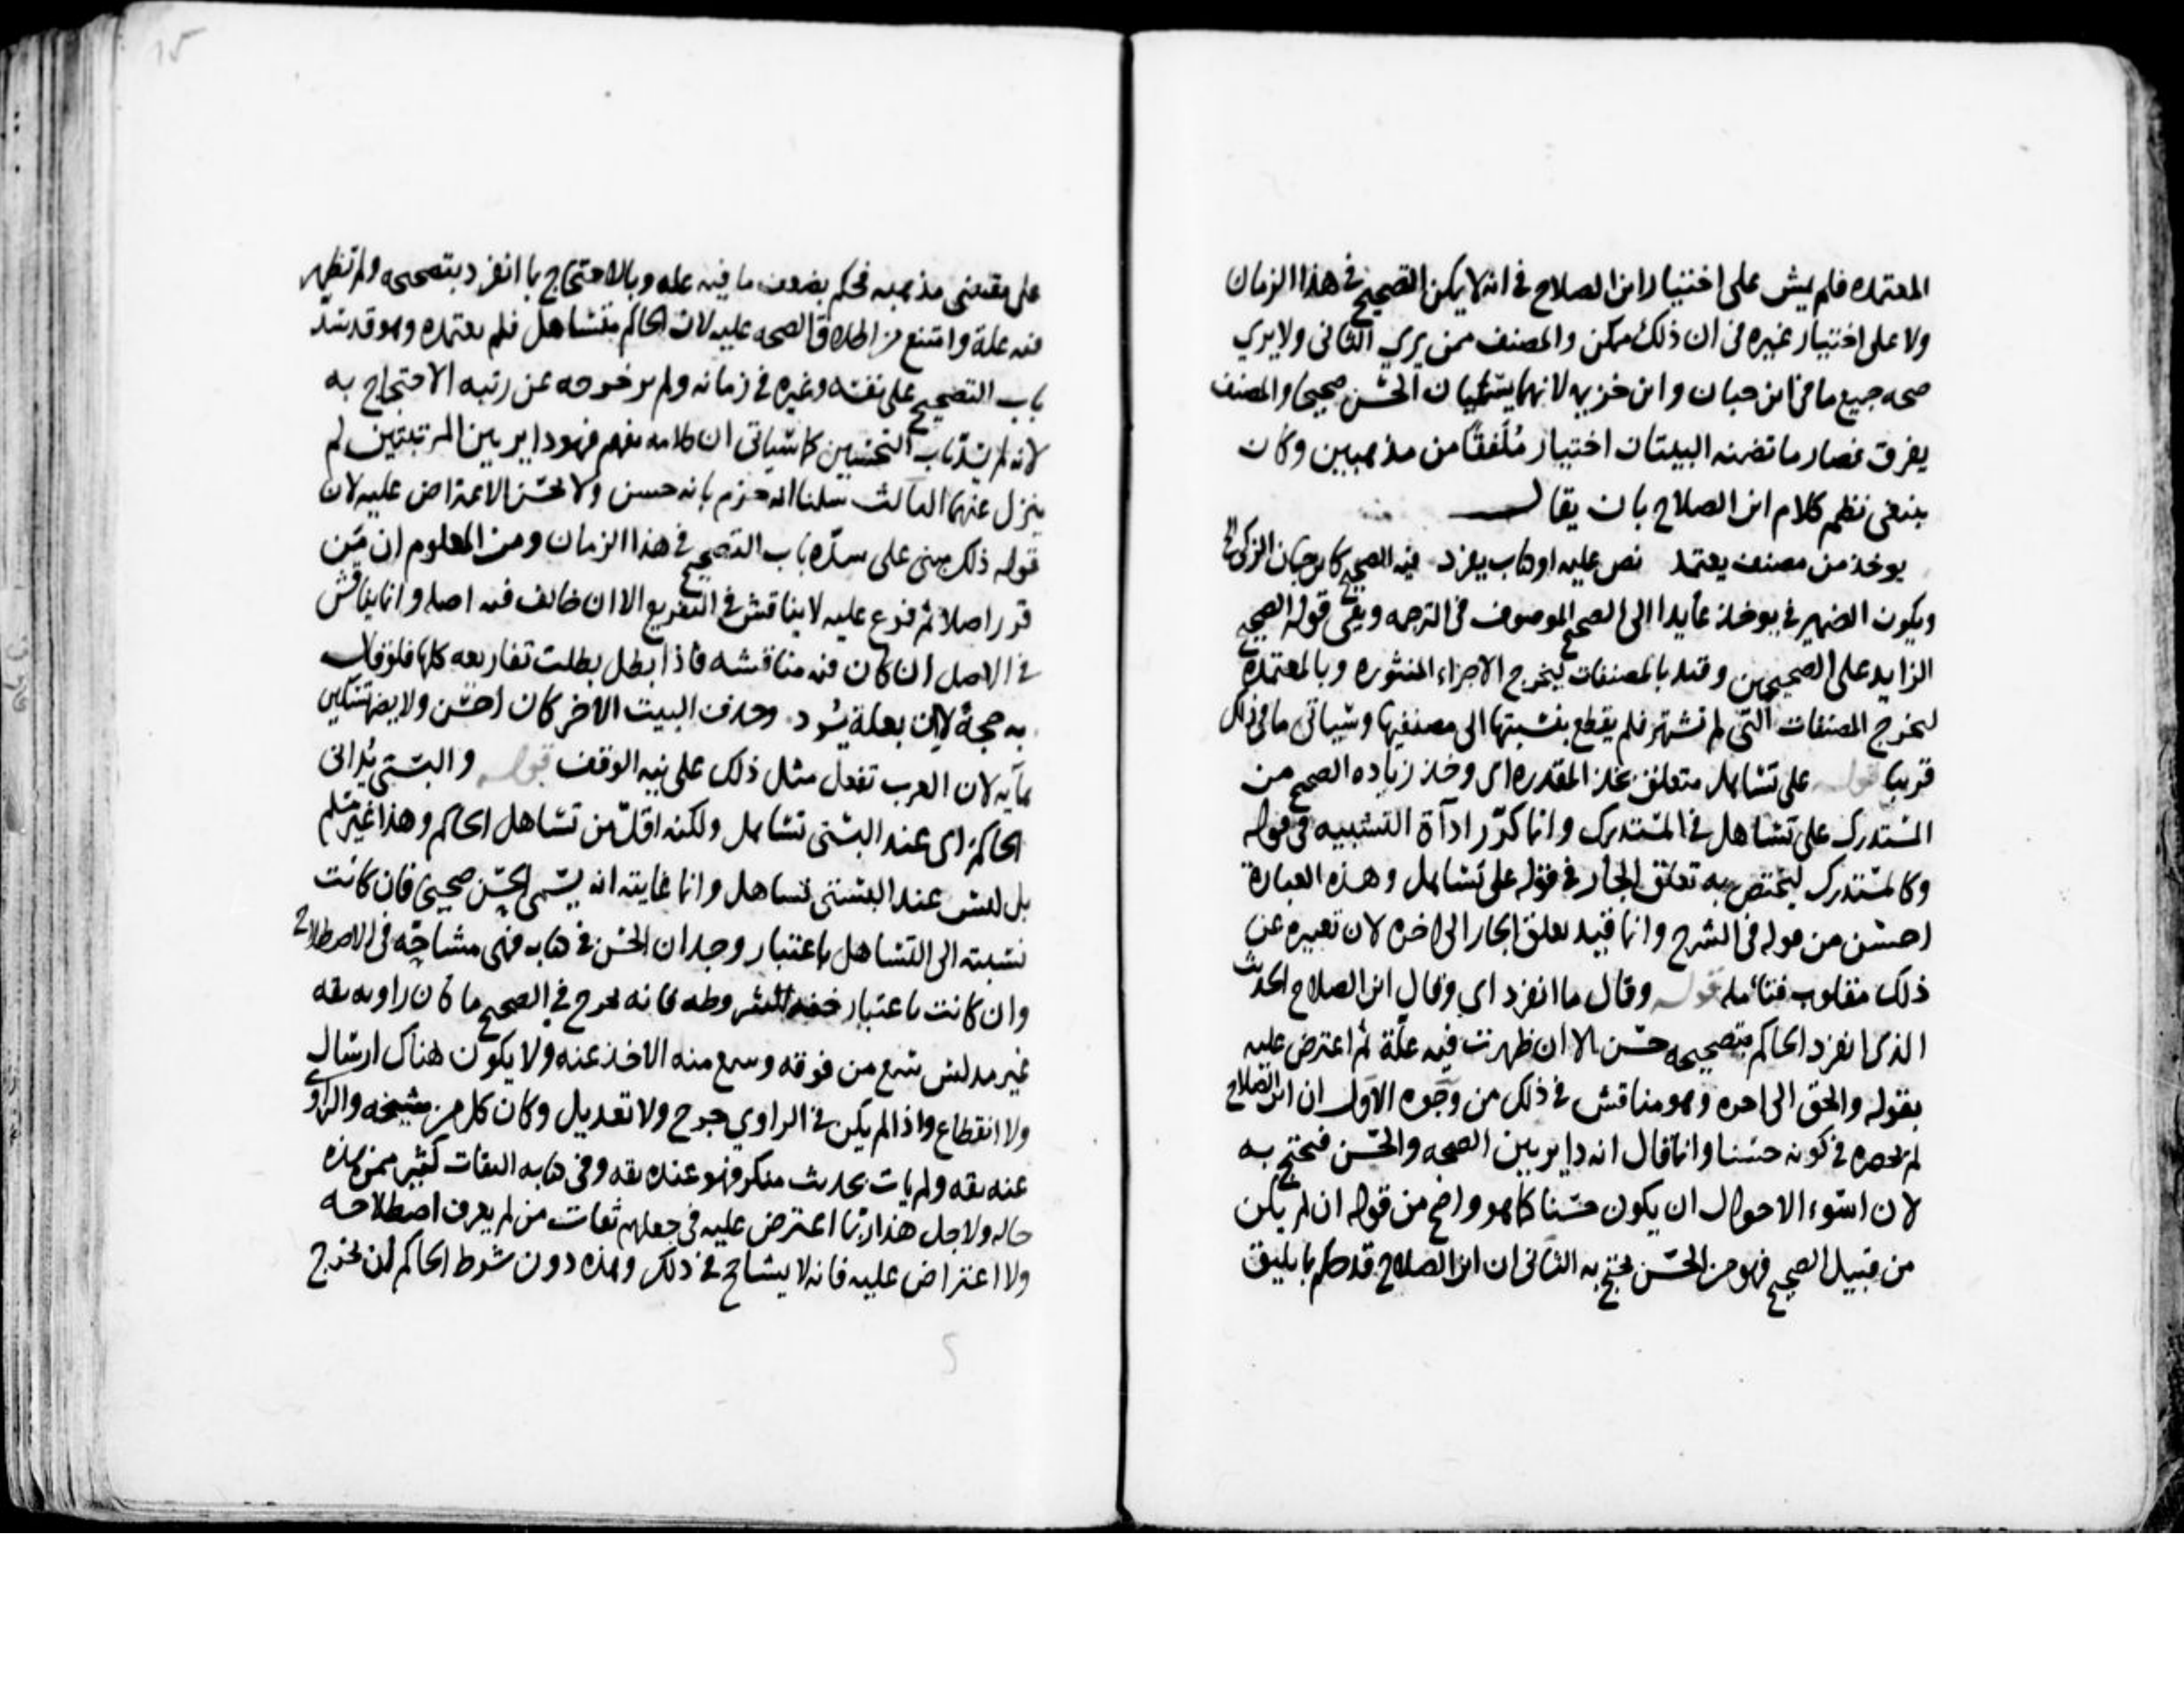 المعتمده فلم يمش على اختيار ابن الصلاح في انه لا يمكن التصحيح في هذا الزمان
ولا على اختيار غيره في ان ذلك ممكن والمصنف ممن يري الثاني ولا يري
صحه جميع ما في ابن حبان وابن خزيمه لانهما يسميان الحسن صحيحا والمصنف
يفرق فصار ما تضمنه البيتان اختيار مُلَفقًا من مذهبين وكان
ينبغي نظم كلام ابن الصلاح بان يقال
يوخذ من مصنف يعتمد نص عليه او كتاب يفرد فيه الصحيح كابن حبان الزكي
ويكون الضمير في يوخذ عايدا الى الصحيح الموصوف في الترجمه وبقي قوله الصحيح
الزايد على الصحيحين وقيد بالمصنفات ليخرج الاجزاء المنثوره وبالمعتمدة
ليخرج المصنفات التي لم تشتهر فلم يقطع بنسبتها الى مصنفيها وسياتي ما في ذلك
قريبا قوله على تساهل متعلق بخذ المقدره اي وخذ زياده الصحيح من
المستدرك على تساهل في المستدرك وانما كرّر ادآة التشبيه في قوله
وكالمستدرك ليختص به تعلق الجار في قوله على تساهل وهذه العبارة
احسن من قوله في الشرح وانما قيد تعلق الجار الى اخره لان تعبيره عن
ذلك مقلوب فتامله قوله وقال ما انفرد اي وقال ابن الصلاح الحديث
الذي انفرد الحاكم بتصحيحه حسن الا ان ظهرت فيه علّة ثم اعترض عليه
بقوله والحق الى اخره وهو مناقش في ذلك من وجوه الاول ان ابن الصلاح
لم يحصره في كونه حسنا وانما قال انه داير بين الصحه والحسن فيحتج به
لان اسوء الاحوال ان يكون حسنا كما هو واضح من قوله ان لم يكن
من قبيل الصحيح فهو من الحسن يحتج به الثاني ان ابن الصلاح قد حكم بما يليق
على مقتضى مذهبه فحكم بضعف ما فيه عله وبالاحتجاج بما انفرد بتصحيحه ولم تظهر
فيه علة وامتنع من اطلاق الصحه عليه لان الحاكم متساهل فلم يعتمده وهو قد سَدّ
باب التصحيح على نفسه وغيره في زمانه ولم يرخوجه عن رتبه الاحتجاج به
لانه لم يسُدّ باب التحسين كما سياتي ان كلامه يفهم فهو داير بين المرتبتين لم
ينزل عنهما الثالث سلمنا انه جزم بانه حسن ولا يحسن الاعتراض عليه لان
قوله ذلك مبني على سدّه باب التصحيح في هذا الزمان ومن المعلوم ان مَن
قرر اصلا ثم فرع عليه لا يناقش في التفريع الا ان خالف فيه اصله وانما يناقش
في الاصل ان كان فيه مناقشه فاذا بطل بطلت تفاريعه كلها فلو قال
به حجةً لا ان بعلة يُرد وحذف البيت الاخر كان احسن ولا يضر تسكين
يآيه لان العرب تفعل مثل ذلك على نيه الوقف قوله والبستي يُداني
الحاكم اي عند البستي تساهل ولكنه اقل من تساهل الحاكم وهذا غير مسَلم
بل ليس عند البستي تساهل وانما غايته انه يسمي الحسن صحيحا فان كانت
نسبته الى التساهل باعتبار وجدان الحسن في كتابه فهي مشاحّه في الاصطلاح
وان كانت باعتبار خفة شروطه فانه يخرج في الصحيح ما كان راويه ثقه
غير مدلس سمع من فوقه وسمع منه الاخذ عنه ولا يكون هناك ارسال
ولا انقطاع واذا لم يكن في الراوي جرح ولا تعديل وكان كل من شيخه والراوي
عنه ثقه ولم يات بحديث منكر فهو عنده ثقه وفي كتابه الثقات كثير ممن هذه
حاله ولاجل هذا ربما اعترض عليه في جعلهم ثقات من لم يعرف اصطلاحه
ولا اعتراض عليه فانه لا يشاحح في ذلك وهذه دون شرط الحاكم لان يخرج